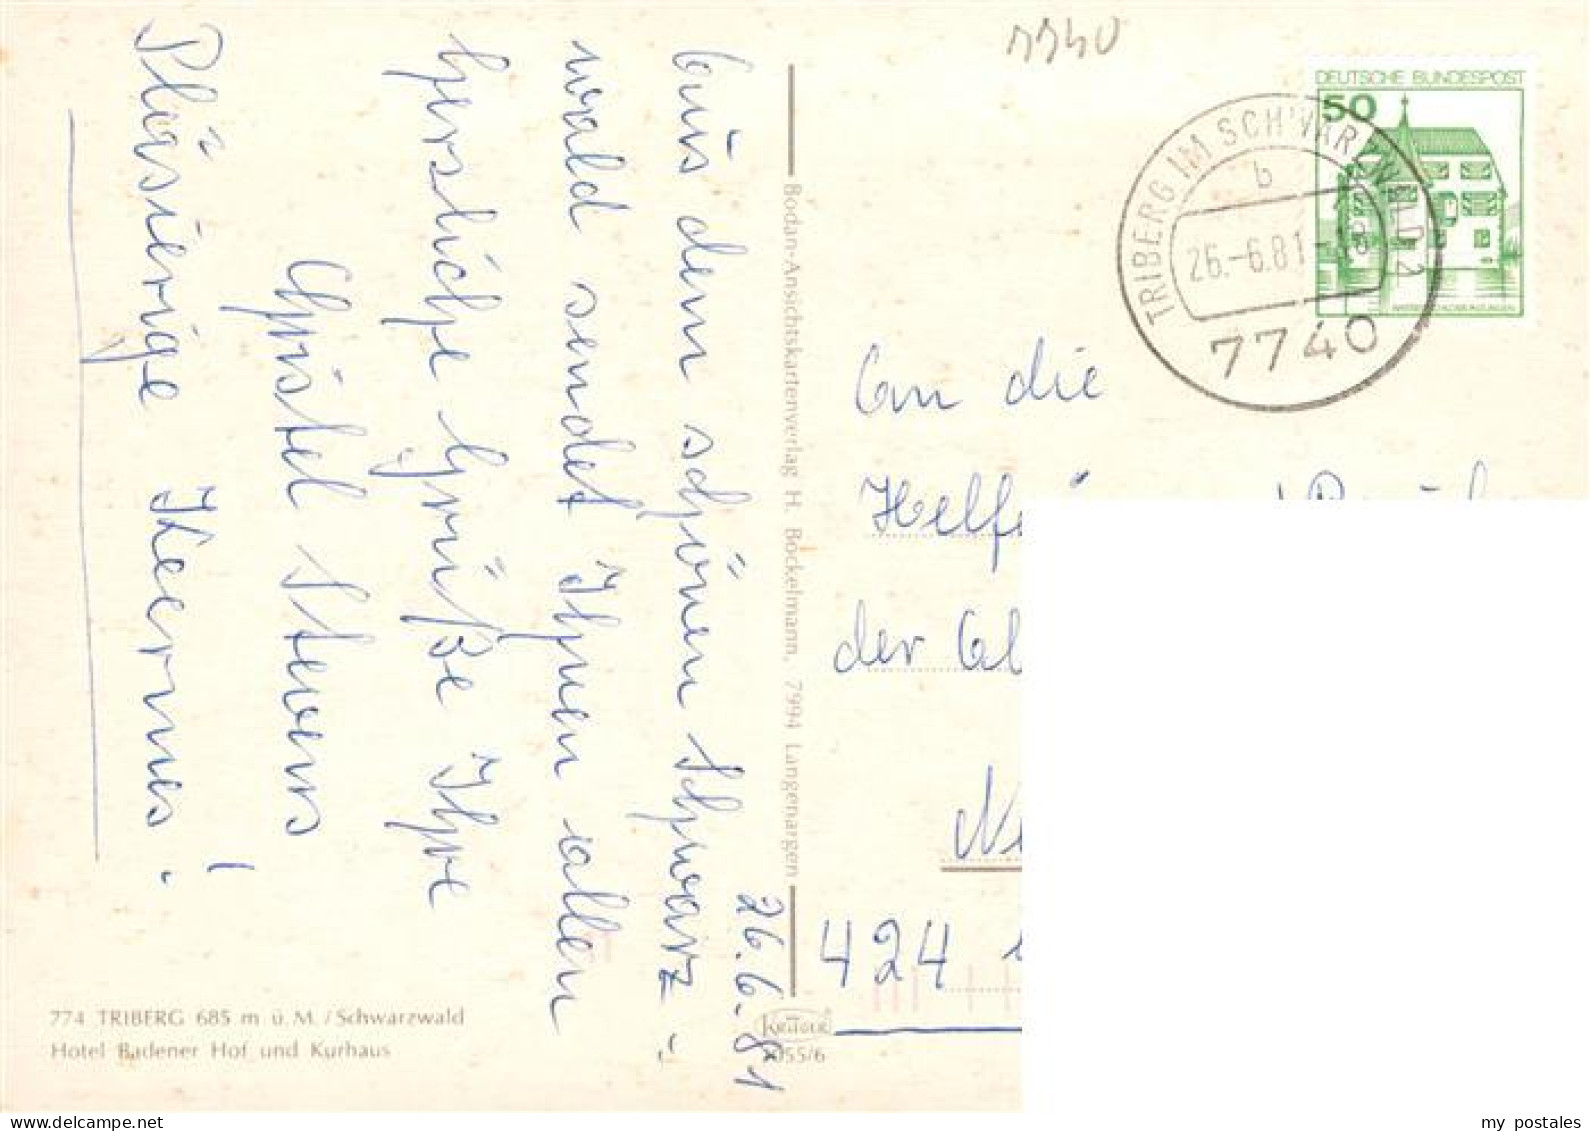 7740
DEUTSCHE BUNDESPOST
50
TRIBERG IM SCHWARZWALD 2
b
26.-6.81-18
7740
26.6.81
Aus dem schönen Schwarz=
wald sendet Ihnen allen
herzliche Grüße Ihre
Christel Stevens
Pläsierige Keermes!
An die
Helfe
der Al
424
Bodan-Ansichtskartenverlag H. Bockelmann, 7994 Langenargen
774 TRIBERG 685 m ü. M. / Schwarzwald
Hotel Badener Hof und Kurhaus
KRÜGER
1055/6
my postales